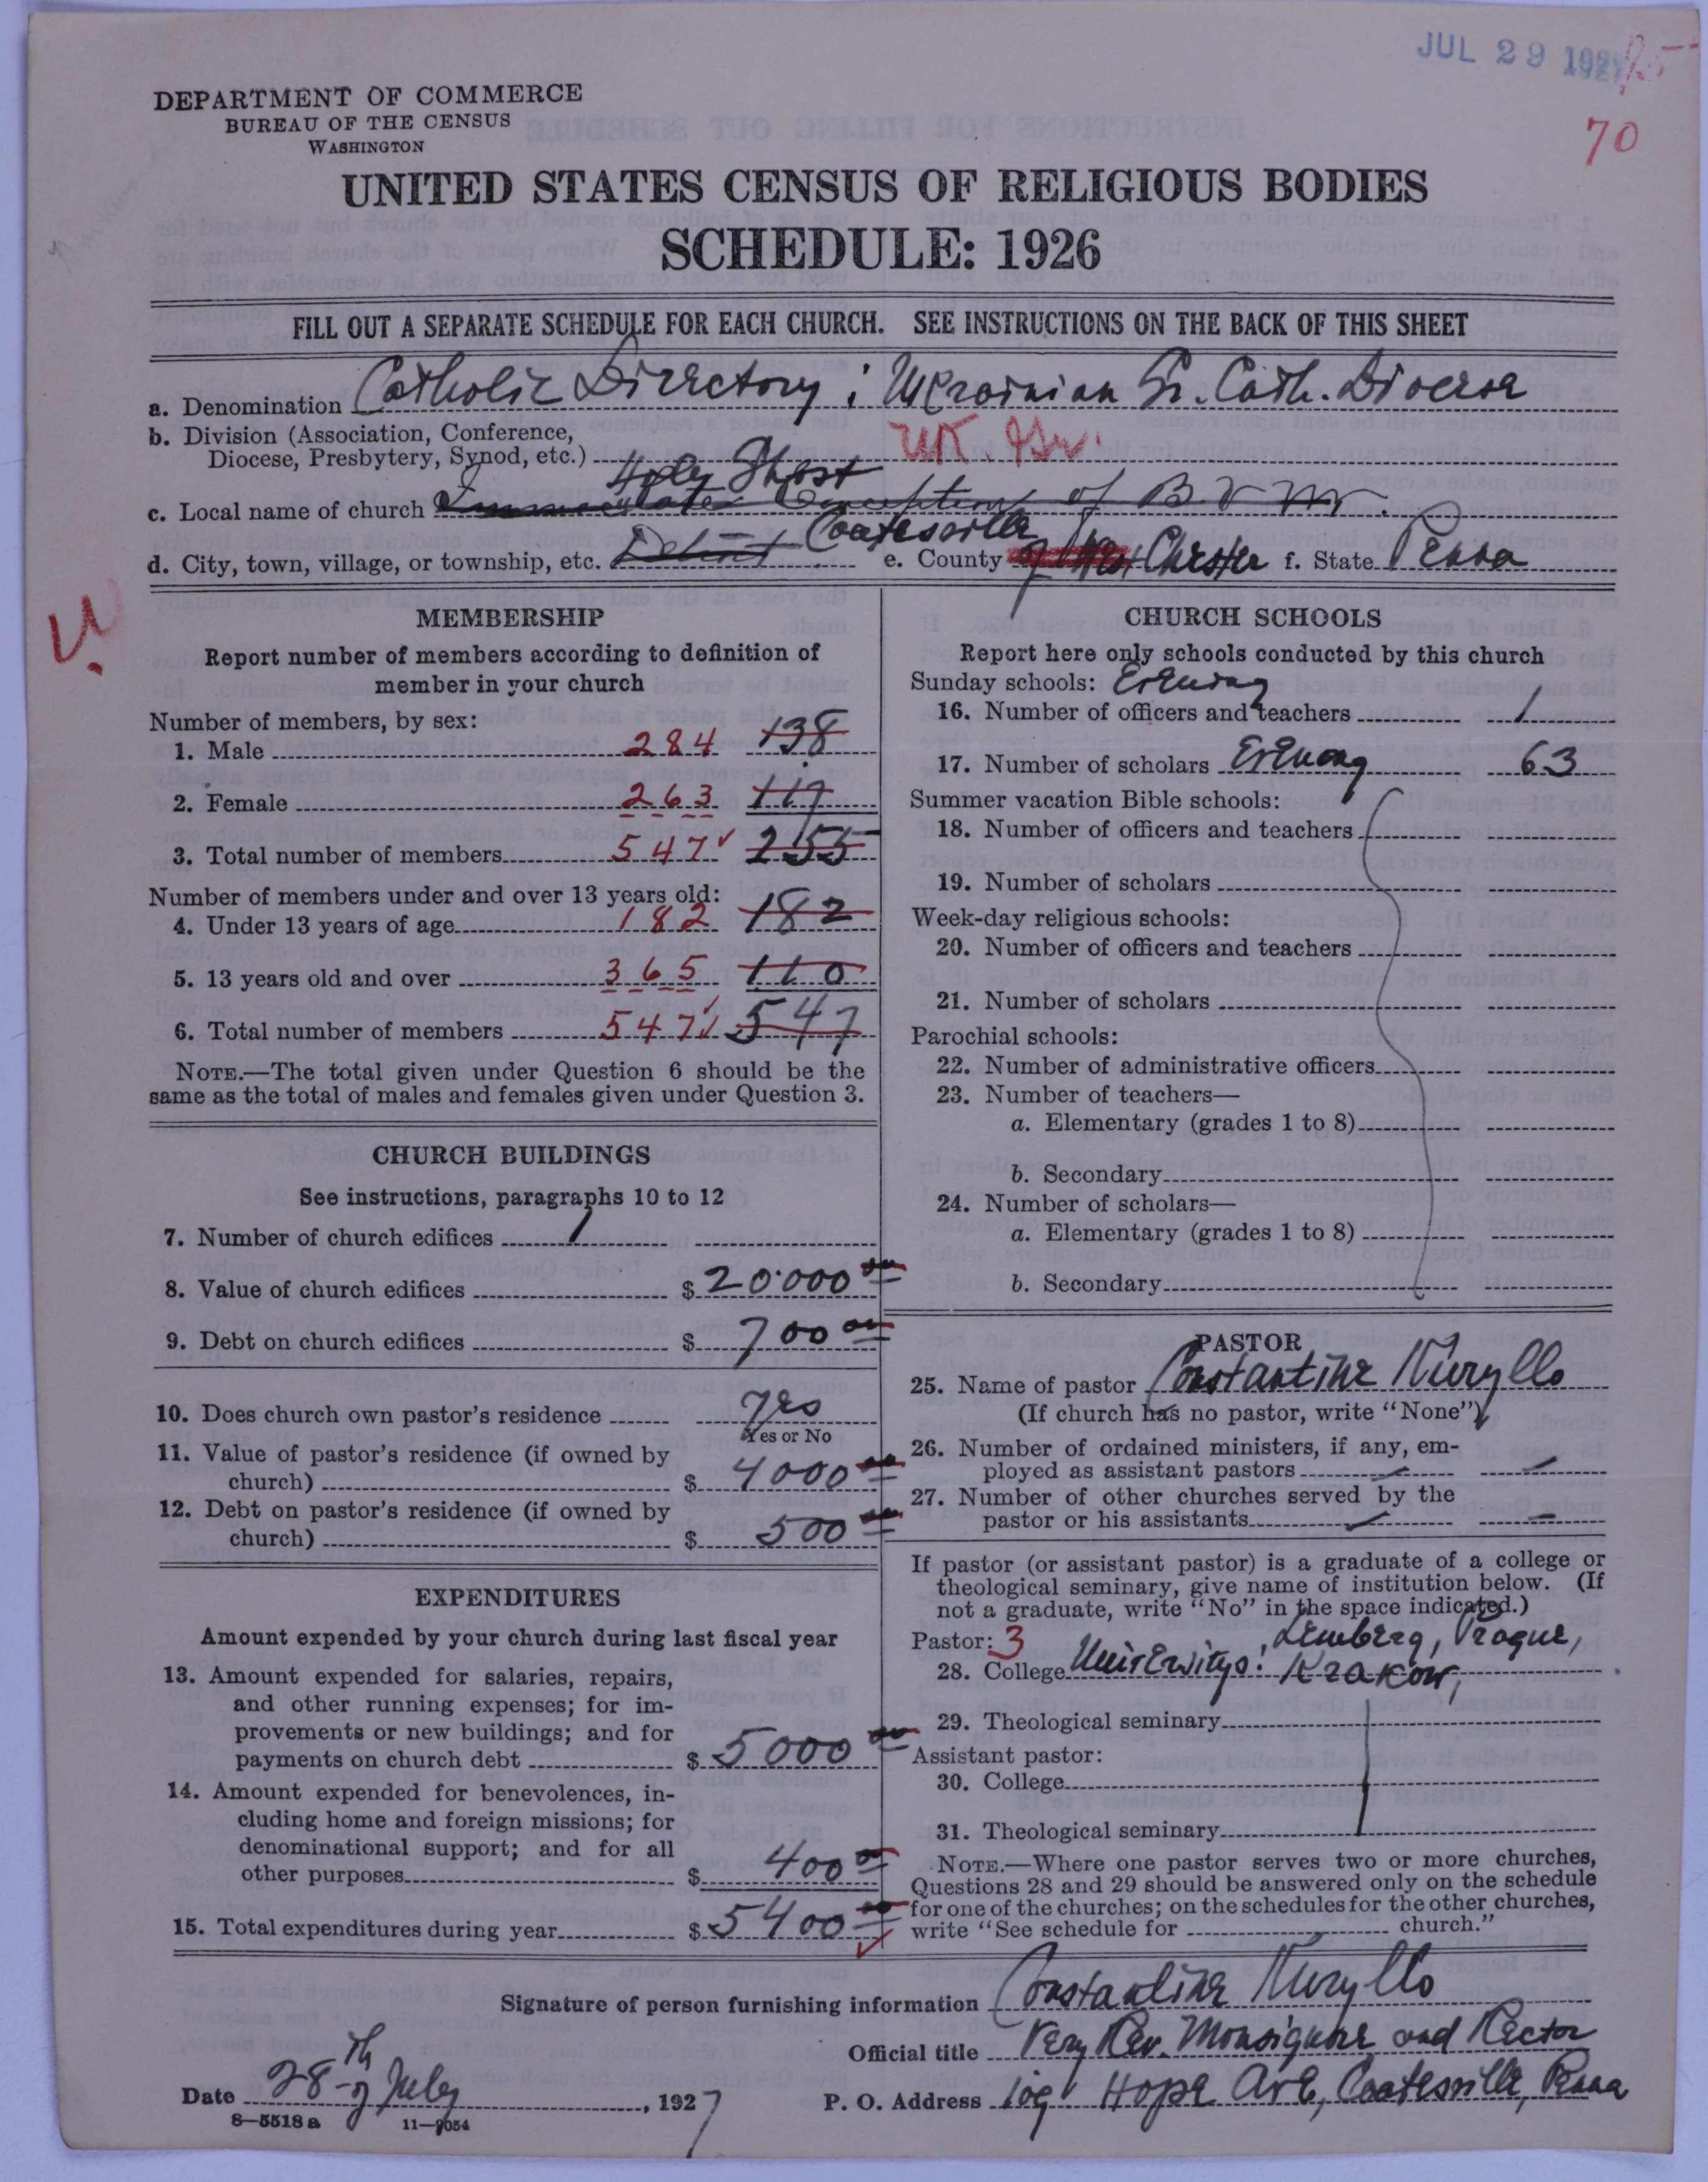 JUL 29 1927
70
DEPARTMENT OF COMMERCE
BUREAU OF THE CENSUS
WASHINGTON
UNITED STATES CENSUS OF RELIGIOUS BODIES
SCHEDULE: 1926
FILL OUT A SEPARATE SCHEDULE FOR EACH CHURCH. SEE INSTRUCTIONS ON THE BACK OF THIS SHEET
a. Denomination Catholic Directory; Ukrainian Gr. Cath. Diocese
b. Division (Association, Conference,
Diocese, Presbytery, Synod, etc.) Uk. Gr.
Holy Ghost
c. Local name of church Immaculate Conception of B. V. M.
d. City, town, village, or township, etc. Coatesville e. County Chester f. State Penna
U.
MEMBERSHIP
Report number of members according to definition of
member in your church
Number of members, by sex:
1. Male 284 138
2. Female 263 117
3. Total number of members 547 255
Number of members under and over 13 years old:
4. Under 13 years of age 182 182
5. 13 years old and over 365 110
6. Total number of members 547 547
NOTE.—The total given under Question 6 should be the
same as the total of males and females given under Question 3.
CHURCH BUILDINGS
See instructions, paragraphs 10 to 12
7. Number of church edifices 1
8. Value of church edifices $ 20.000 00
9. Debt on church edifices $ 700 00
10. Does church own pastor's residence Yes
Yes or No
11. Value of pastor's residence (if owned by
church) $ 4000 00
12. Debt on pastor's residence (if owned by
church) $ 500 00
EXPENDITURES
Amount expended by your church during last fiscal year
13. Amount expended for salaries, repairs,
and other running expenses; for im-
provements or new buildings; and for
payments on church debt $ 5000 00
14. Amount expended for benevolences, in-
cluding home and foreign missions; for
denominational support; and for all
other purposes $ 400 00
15. Total expenditures during year $ 5400 00
CHURCH SCHOOLS
Report here only schools conducted by this church
Sunday schools: Evening
16. Number of officers and teachers 1
17. Number of scholars Evening 63
Summer vacation Bible schools:
18. Number of officers and teachers
19. Number of scholars
Week-day religious schools:
20. Number of officers and teachers
21. Number of scholars
Parochial schools:
22. Number of administrative officers
23. Number of teachers—
a. Elementary (grades 1 to 8)
b. Secondary
24. Number of scholars—
a. Elementary (grades 1 to 8)
b. Secondary
PASTOR
25. Name of pastor Constantine Kuryllo
(If church has no pastor, write "None")
26. Number of ordained ministers, if any, em-
ployed as assistant pastors — —
27. Number of other churches served by the
pastor or his assistants — —
If pastor (or assistant pastor) is a graduate of a college or
theological seminary, give name of institution below. (If
not a graduate, write "No" in the space indicated.)
Pastor: 3 Lemberg, Prague,
28. College Universitys: Krakow,
29. Theological seminary
Assistant pastor:
30. College
31. Theological seminary
NOTE.—Where one pastor serves two or more churches,
Questions 28 and 29 should be answered only on the schedule
for one of the churches; on the schedules for the other churches,
write "See schedule for church."
Signature of person furnishing information Constantine Kuryllo
Official title Very Rev. Monsignore and Rector
Date 28-th of July, 1927 P. O. Address 109 Hope Ave, Coatesville, Penna
8—5518a 11—9054